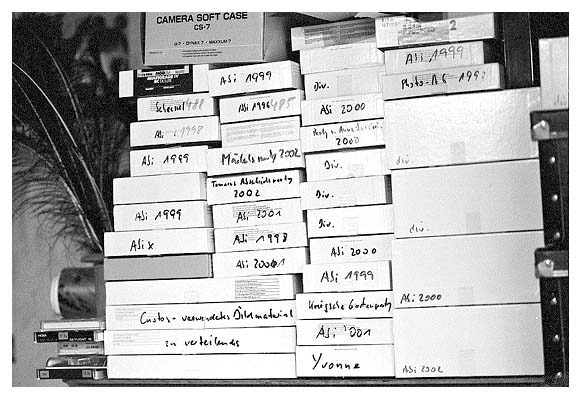 CAMERA SOFT CASE
CS-7
α-7 • DYNAX 7 • MAXXUM 7
ASi 1999
488
ASi 1998
ASi 1999
ASi 1999
ASi x
ASi 1999
ASi 1996 485
Möckelsparty 2002
Tamaras Abschiedsparty
2002
ASi 2001
ASi 1998
ASi 2001
Custos - verwendetes Bildmaterial
zu verteilendes
Div.
ASi 2000
2000
Div.
Div.
Div.
ASi 2000
ASi 1999
ASi 2001
Yvonne
2
ASi 1999
Photo-AG 1998
div.
div.
ASi 2000
ASi 2002